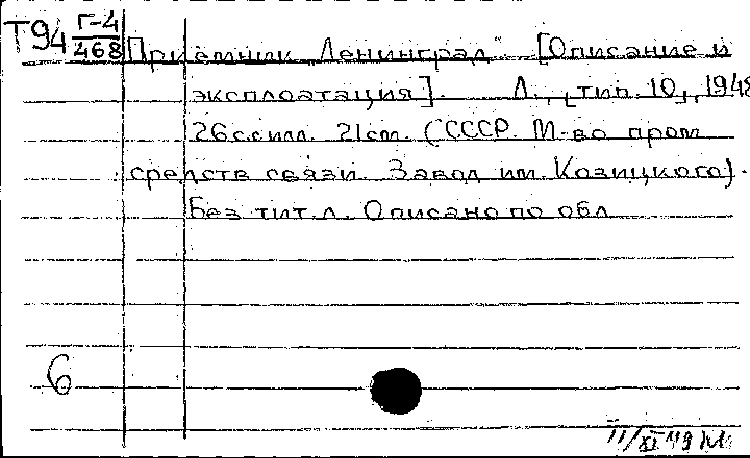 Т94 Г-4/468
Приемник „Ленинград". [Описание и
эксплоатация]. Л., [тип. 10], 1948
26с.с илл. 21cm. (СССР. М-во пром.
средств связи. Завод им. Козицкого).
Без тит.л. Описано по обл.
6
11/XI 49